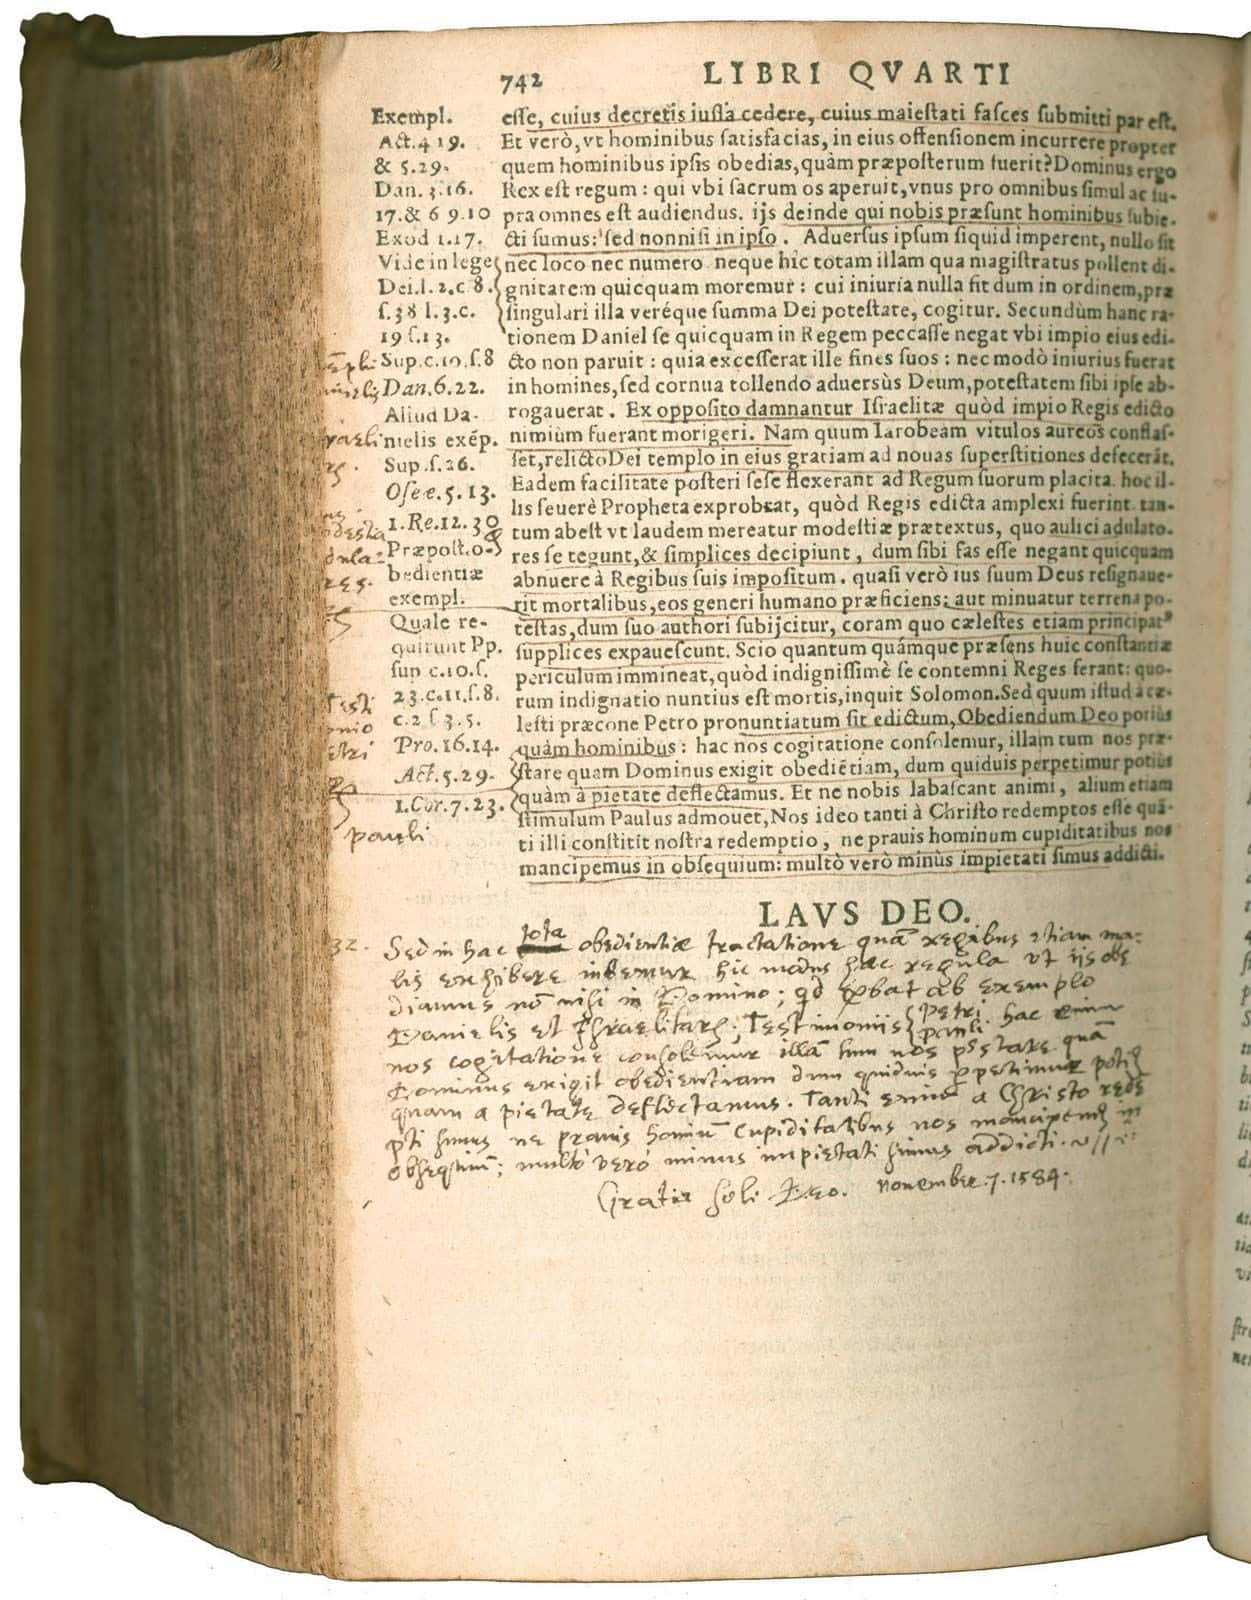 742 LIBRI QVARTI
Exempl.
Act. 4 19.
& 5.29.
Dan. 3.16.
17. & 6 9.10
Exod 1.17.
Vide in lege
Dei. l. 2. c 8.
s. 38 l. 3. c.
19 s. 13.
Sup. c. 10. s. 8
Dan. 6. 22.
Aliud Da-
nielis exẽp.
Sup. s. 26.
Osee. 5. 13.
1. Re. 12. 30
Præpost. o-
bedientiæ
exempl.
Quale re-
quirunt Pp.
sup c. 10. s.
23. c. 11. s. 8.
c. 2 s 3. 5.
Pro. 16. 14.
Act. 5. 29.
1. Cor. 7. 23.
pauli
esse, cuius decretis iussa cedere, cuius maiestati fasces submitti par est.
Et verò, vt hominibus satisfacias, in eius offensionem incurrere propter
quem hominibus ipsis obedias, quàm præposterum fuerit? Dominus ergo
Rex est regum : qui vbi sacrum os aperuit, vnus pro omnibus simul ac su-
pra omnes est audiendus. ijs deinde qui nobis præsunt hominibus subie-
cti sumus: sed nonnisi in ipso . Aduersus ipsum siquid imperent, nullo sit
nec loco nec numero neque hic totam illam qua magistratus pollent di-
gnitatem quicquam moremur : cui iniuria nulla fit dum in ordinem, præ
singulari illa veréque summa Dei potestate, cogitur. Secundùm hanc ra-
tionem Daniel se quicquam in Regem peccasse negat vbi impio eius edi-
cto non paruit : quia excesserat ille fines suos : nec modò iniurius fuerat
in homines, sed cornua tollendo aduersùs Deum, potestatem sibi ipse ab-
rogauerat . Ex opposito damnantur Israelitæ quòd impio Regis edicto
nimiùm fuerant morigeri. Nam quum Iarobeam vitulos aureos conflas-
set, relicto Dei templo in eius gratiam ad nouas superstitiones defecerãt.
Eadem facilitate posteri sese flexerant ad Regum suorum placita. hoc il-
lis seuerè Propheta exprobrat, quòd Regis edicta amplexi fuerint. tan-
tum abest vt laudem mereatur modestiæ prætextus, quo aulici adulato-
res se tegunt, & simplices decipiunt , dum sibi fas esse negant quicquam
abnuere à Regibus suis impositum . quasi verò ius suum Deus resignaue-
rit mortalibus, eos generi humano præficiens: aut minuatur terrena po-
testas, dum suo authori subijcitur, coram quo cælestes etiam principatꝰ
supplices expauescunt. Scio quantum quámque præsens huic constantiæ
periculum immineat, quòd indignissimè se contemni Reges ferant: quo-
rum indignatio nuntius est mortis, inquit Solomon. Sed quum istud a cæ-
lesti præcone Petro pronuntiatum sit edictum, Obediendum Deo potius
quàm hominibus : hac nos cogitatione consolemur, illam tum nos præ-
stare quam Dominus exigit obediẽtiam, dum quiduis perpetimur potius
quàm à pietate deflectamus. Et ne nobis labascant animi, alium etiam
stimulum Paulus admouet, Nos ideo tanti à Christo redemptos esse quã-
ti illi constitit nostra redemptio , ne prauis hominum cupiditatibus nos
mancipemus in obsequium : multò verò minùs impietati simus addicti.
LAVS DEO.
32. Sed in hac tota obedientiæ tractatione quã regibus etiam ma-
lis exhibere iubemur hic modus hæc regula vt iis obe
diamus nõ nisi in Domino; qd probat ab exemplo
Danielis et Israelitarũ; Testimoniis { Petri pauli. hac enim
nos cogitatione consolemur illã tum nos præstare quã
Dominus exigit obedientiam dum quiduis perpetimur poti9
quam a pietate deflectamus. Tanti enim a Christo rede
pti sumus ne prauis hominũ cupiditatibus nos mancipem9 in
obsequium; multò verò minus impietati simus addicti.
Gratia soli Deo. November. 7. 1584.